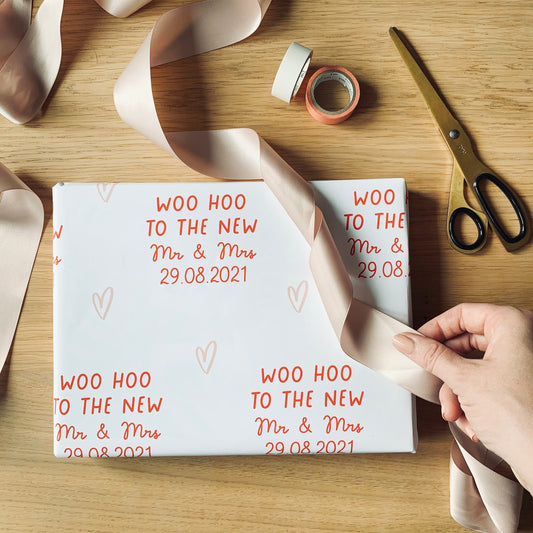 WOO HOO
TO THE NEW
Mr & Mrs
29.08.2021
WOO
TO THE
Mr & Mrs
29.08.
WOO HOO
TO THE NEW
Mr & Mrs
29.08.2021
WOO HOO
TO THE NEW
Mr & Mrs
29.08.2021